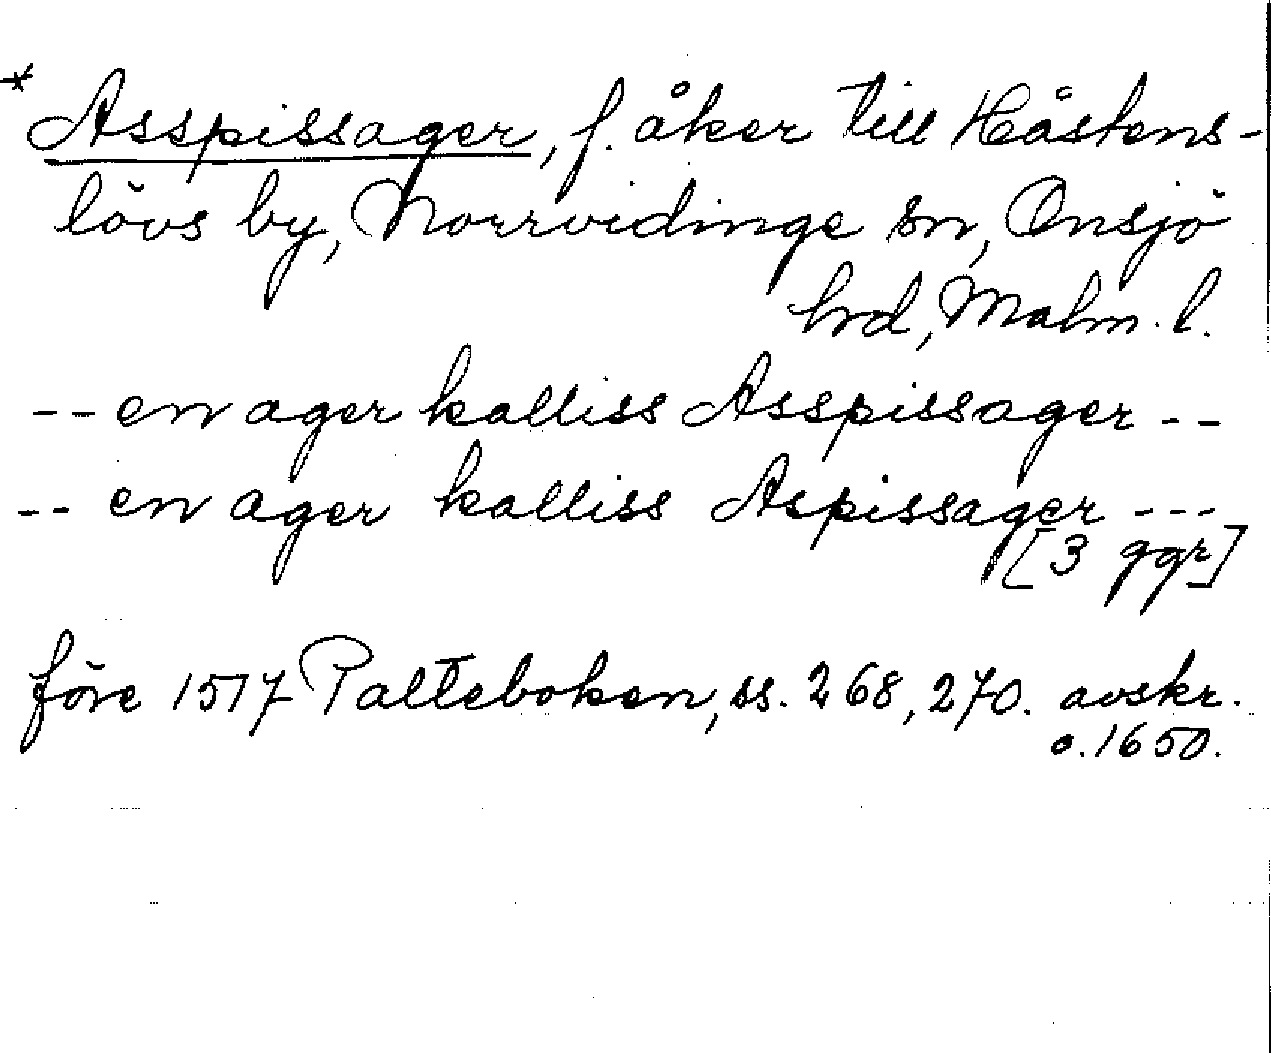 * Asspissager, f. åker till Håstens-
lövs by, Norrvidinge sn, Onsjö
hrd, Malm. l.
-- en ager kalliss Asspissager --
-- en ager kalliss Aspissager ---
[3 ggr]
före 1517 Palteboken, ss. 268, 270. avskr.
o. 1650.